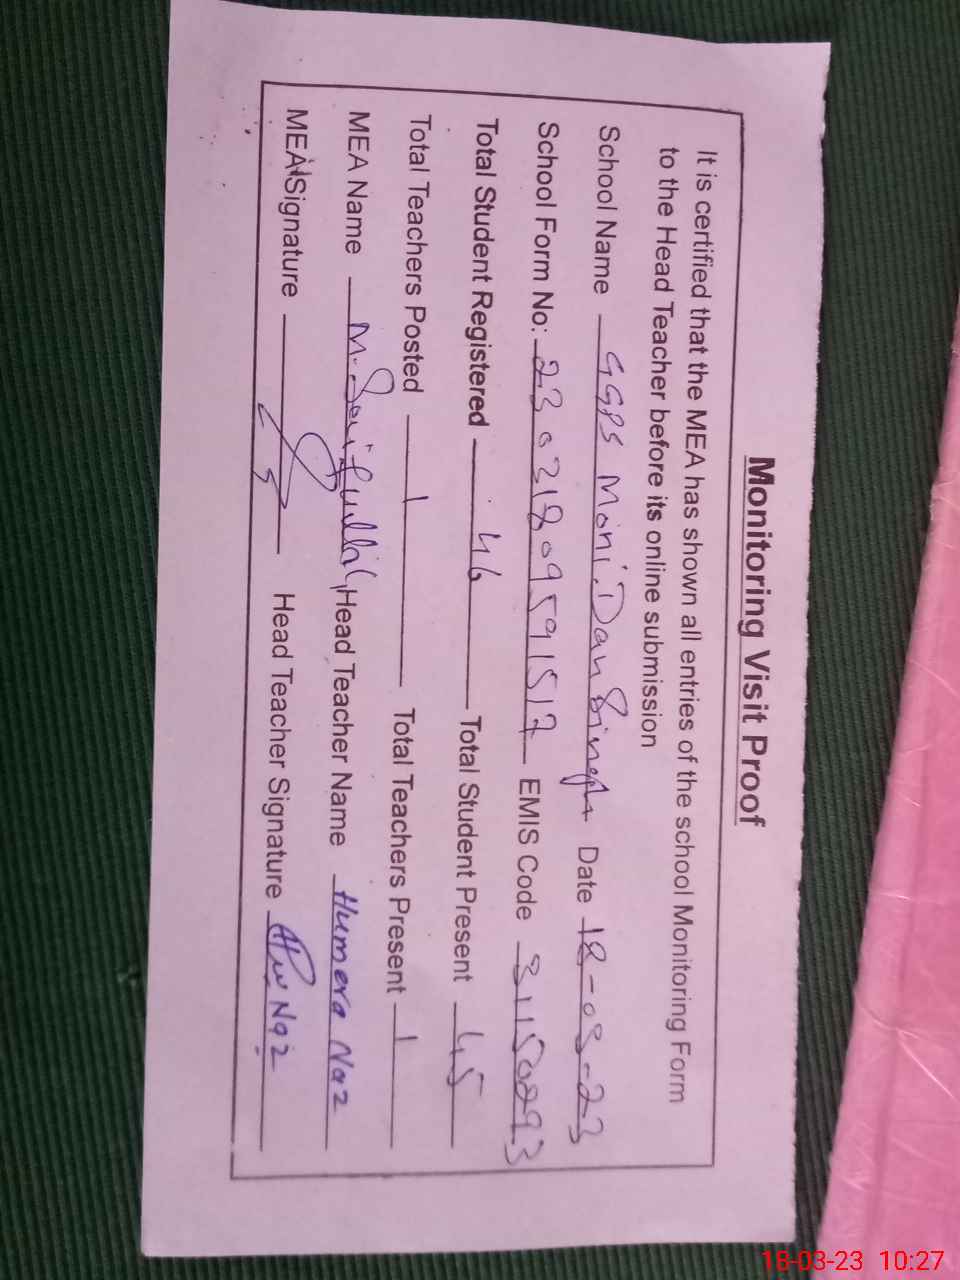 Monitoring Visit Proof
It is certified that the MEA has shown all entries of the school Monitoring Form
to the Head Teacher before its online submission
School Name GGPS Moni Dan Singh Date 18-03-23
School Form No: 23031809591517 EMIS Code 31150293
Total Student Registered 46 Total Student Present 45
Total Teachers Posted 1 Total Teachers Present 1
MEA Name M. Head Teacher Name Humera Naz
MEA Signature Head Teacher Signature Naz
18-03-23 10:27